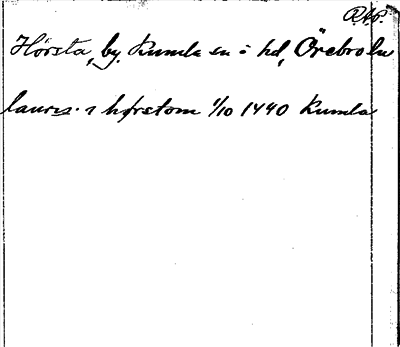 RAP.
Hörsta, by. Kumla sn o hd, Örebro ln
laurens i hørstom 1/10 1440 Kumla